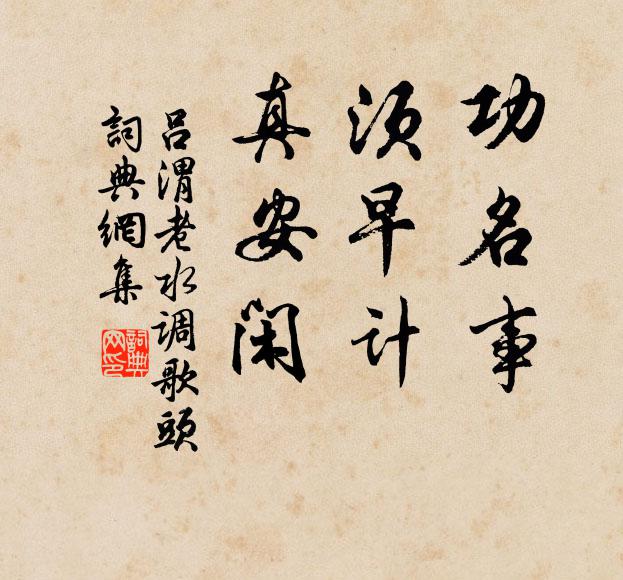 功名事
须早计
真安闲
吕渭老水调歌頭
詞典網集
詞典
网印